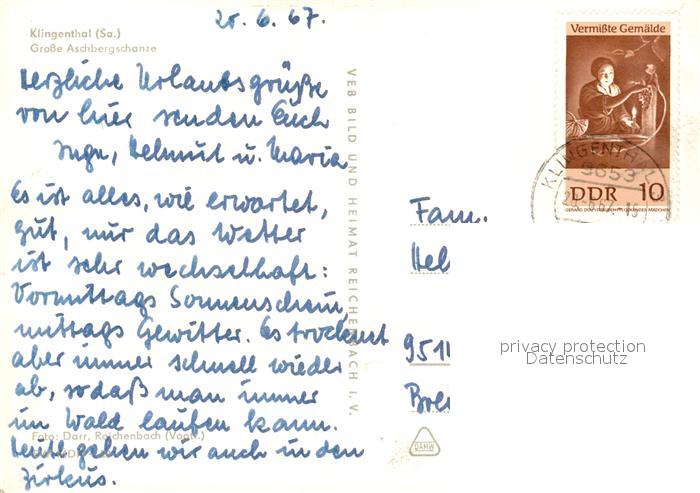 Klingenthal (Sa.)
Große Aschbergschanze
20.6.67.
Herzliche Urlaubsgrüße
von hier senden Euch
Inge, Helmut u. Maria
Es ist alles, wie erwartet,
gut, nur das Wetter
ist sehr wechselhaft:
Vormittags Sonnenschein,
mittags Gewitter. Es trocknet
aber immer schnell wieder
ab, sodaß man immer
im Wald laufen kann.
Heute gehen wir auch in den
Zirkus.
Foto: Darr, Reichenbach (Vogtl.)
VEB BILD UND HEIMAT REICHENBACH I. V.
Vermißte Gemälde
DDR 10
KLINGENTHAL
9653
Fam.
Hel
9511
privacy protection
Datenschutz
DAMW